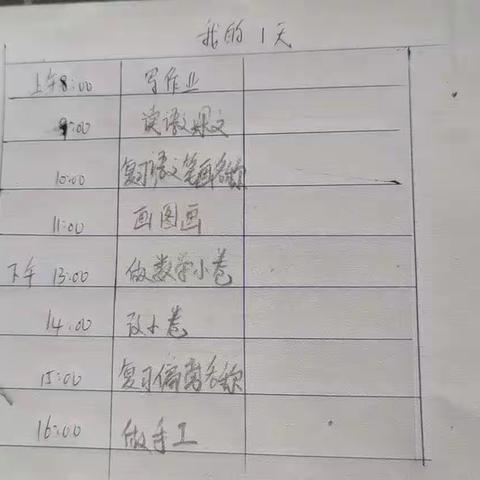 我的1天
上午8:00 写作业
9:00 读语文课文
10:00 复习语文笔画名称
11:00 画图画
下午 13:00 做数学小卷
14:00 改小卷
15:00 复习偏旁名称
16:00 做手工